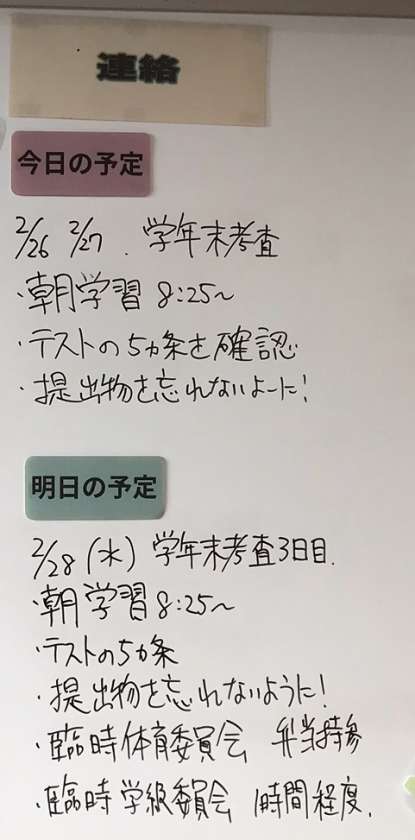 連絡
今日の予定
2/26 2/27 . 学年末考査
・朝学習 8:25~
・テストの5ヵ条を確認
・提出物を忘れないよーに!
明日の予定
2/28 (水) 学年末考査3日目.
・朝学習 8:25~
・テストの5ヵ条
・提出物を忘れないように!
・臨時体育委員会 弁当持参
・臨時学級委員会 1時間程度.